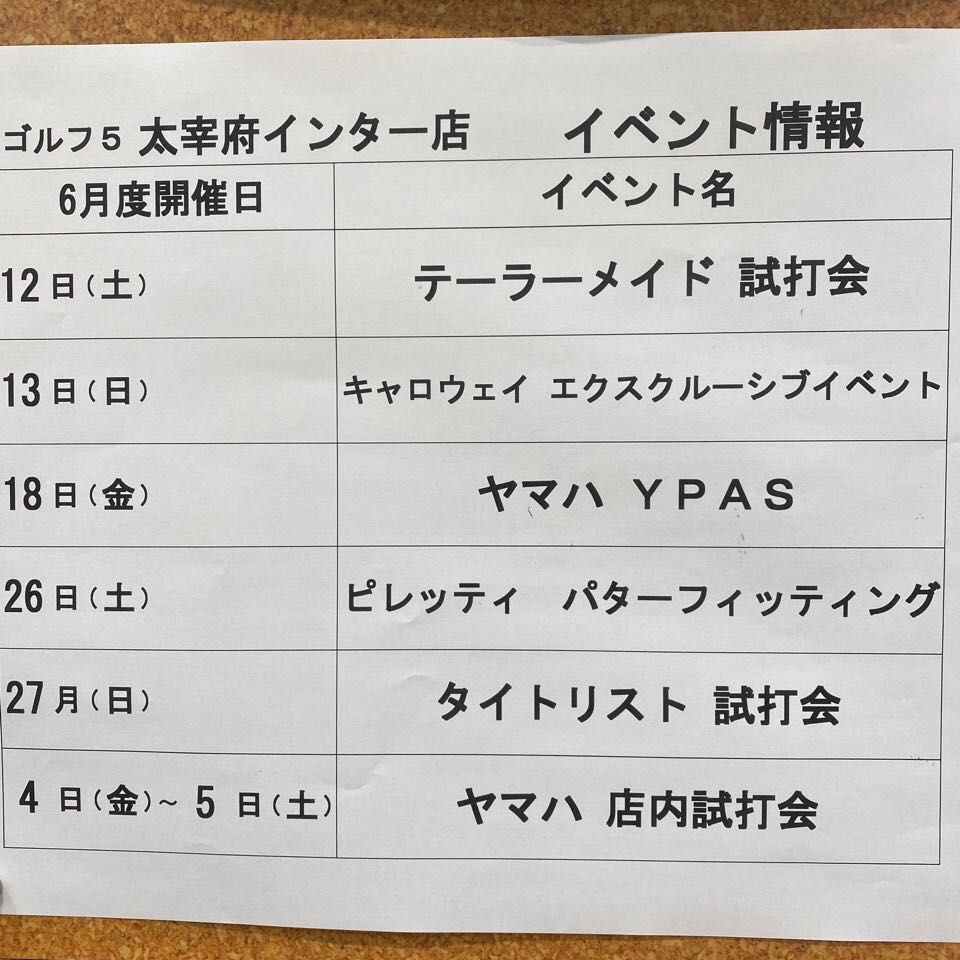 ゴルフ５ 太宰府インター店 イベント情報
6月度開催日 イベント名
12日(土) テーラーメイド 試打会
13日(日) キャロウェイ エクスクルーシブイベント
18日(金) ヤマハ ＹＰＡＳ
26日(土) ピレッティ パターフィッティング
27月(日) タイトリスト 試打会
4日(金)～5日(土) ヤマハ 店内試打会